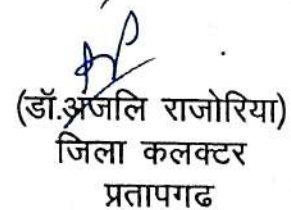 (डॉ.अंजलि राजोरिया)
जिला कलक्टर
प्रतापगढ